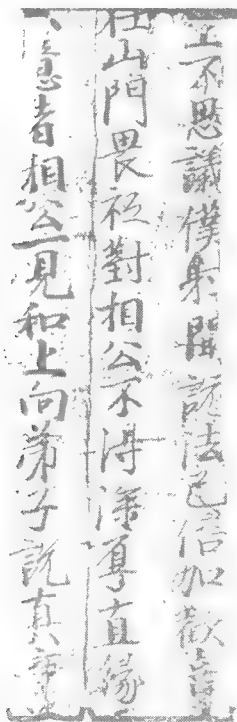 不思議僕射聞說法已倍加歡喜
在山門畏祗對相公不得深尊直緣
意者相公一見和上向弟子說真